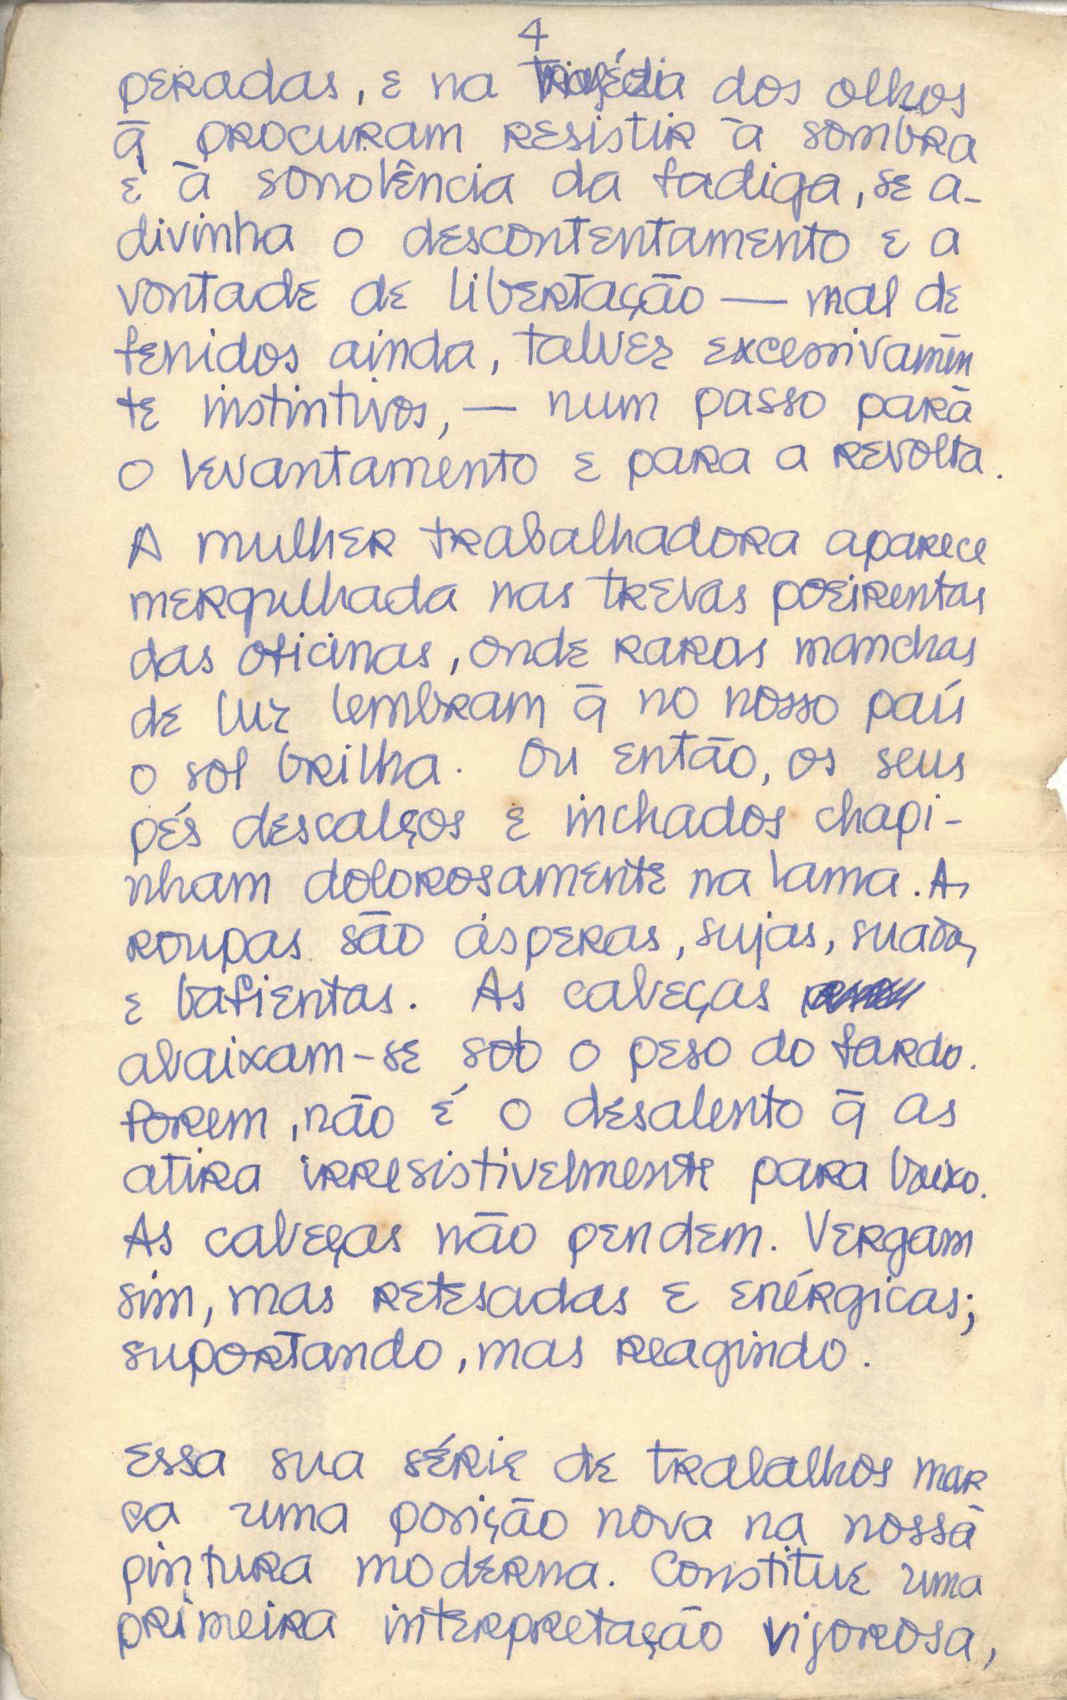 4
peradas, e na tragédia dos olhos
q̄ procuram resistir à sombra
e à sonolência da fadiga, se a-
divinha o descontentamento e a
vontade de libertação — mal de
fenidos ainda, talvez excessivamen
te instintivos, — num passo para
o levantamento e para a revolta.
A mulher trabalhadora aparece
mergulhada nas trevas poeirentas
das oficinas, onde raras manchas
de luz lembram q̄ no nosso país
o sol brilha. Ou então, os seus
pés descalços e inchados chapi-
nham dolorosamente na lama. As
roupas são ásperas, sujas, suadas,
e bafientas. As cabeças
abaixam-se sob o peso do fardo.
Porem, não é o desalento q̄ as
atira irresistivelmente para baixo.
As cabeças não pendem. Vergam
sim, mas retesadas e enérgicas;
suportando, mas reagindo.
Essa sua série de trabalhos mar
ca uma posição nova na nossa
pintura moderna. Constitue uma
primeira interpretação vigorosa,